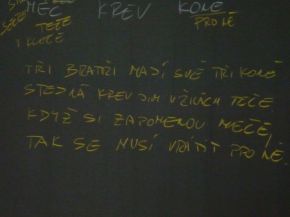 MEČ KREV KONĚ
SEKE TEČE PRO NĚ
TŘI BRATŘI MAJÍ SVÉ TŘI KONĚ
STEJNÁ KREV JIM V ŽILÁCH TEČE.
KDYŽ SI ZAPOMENOU MEČE,
TAK SE MUSÍ VRÁTIT PRO NĚ.